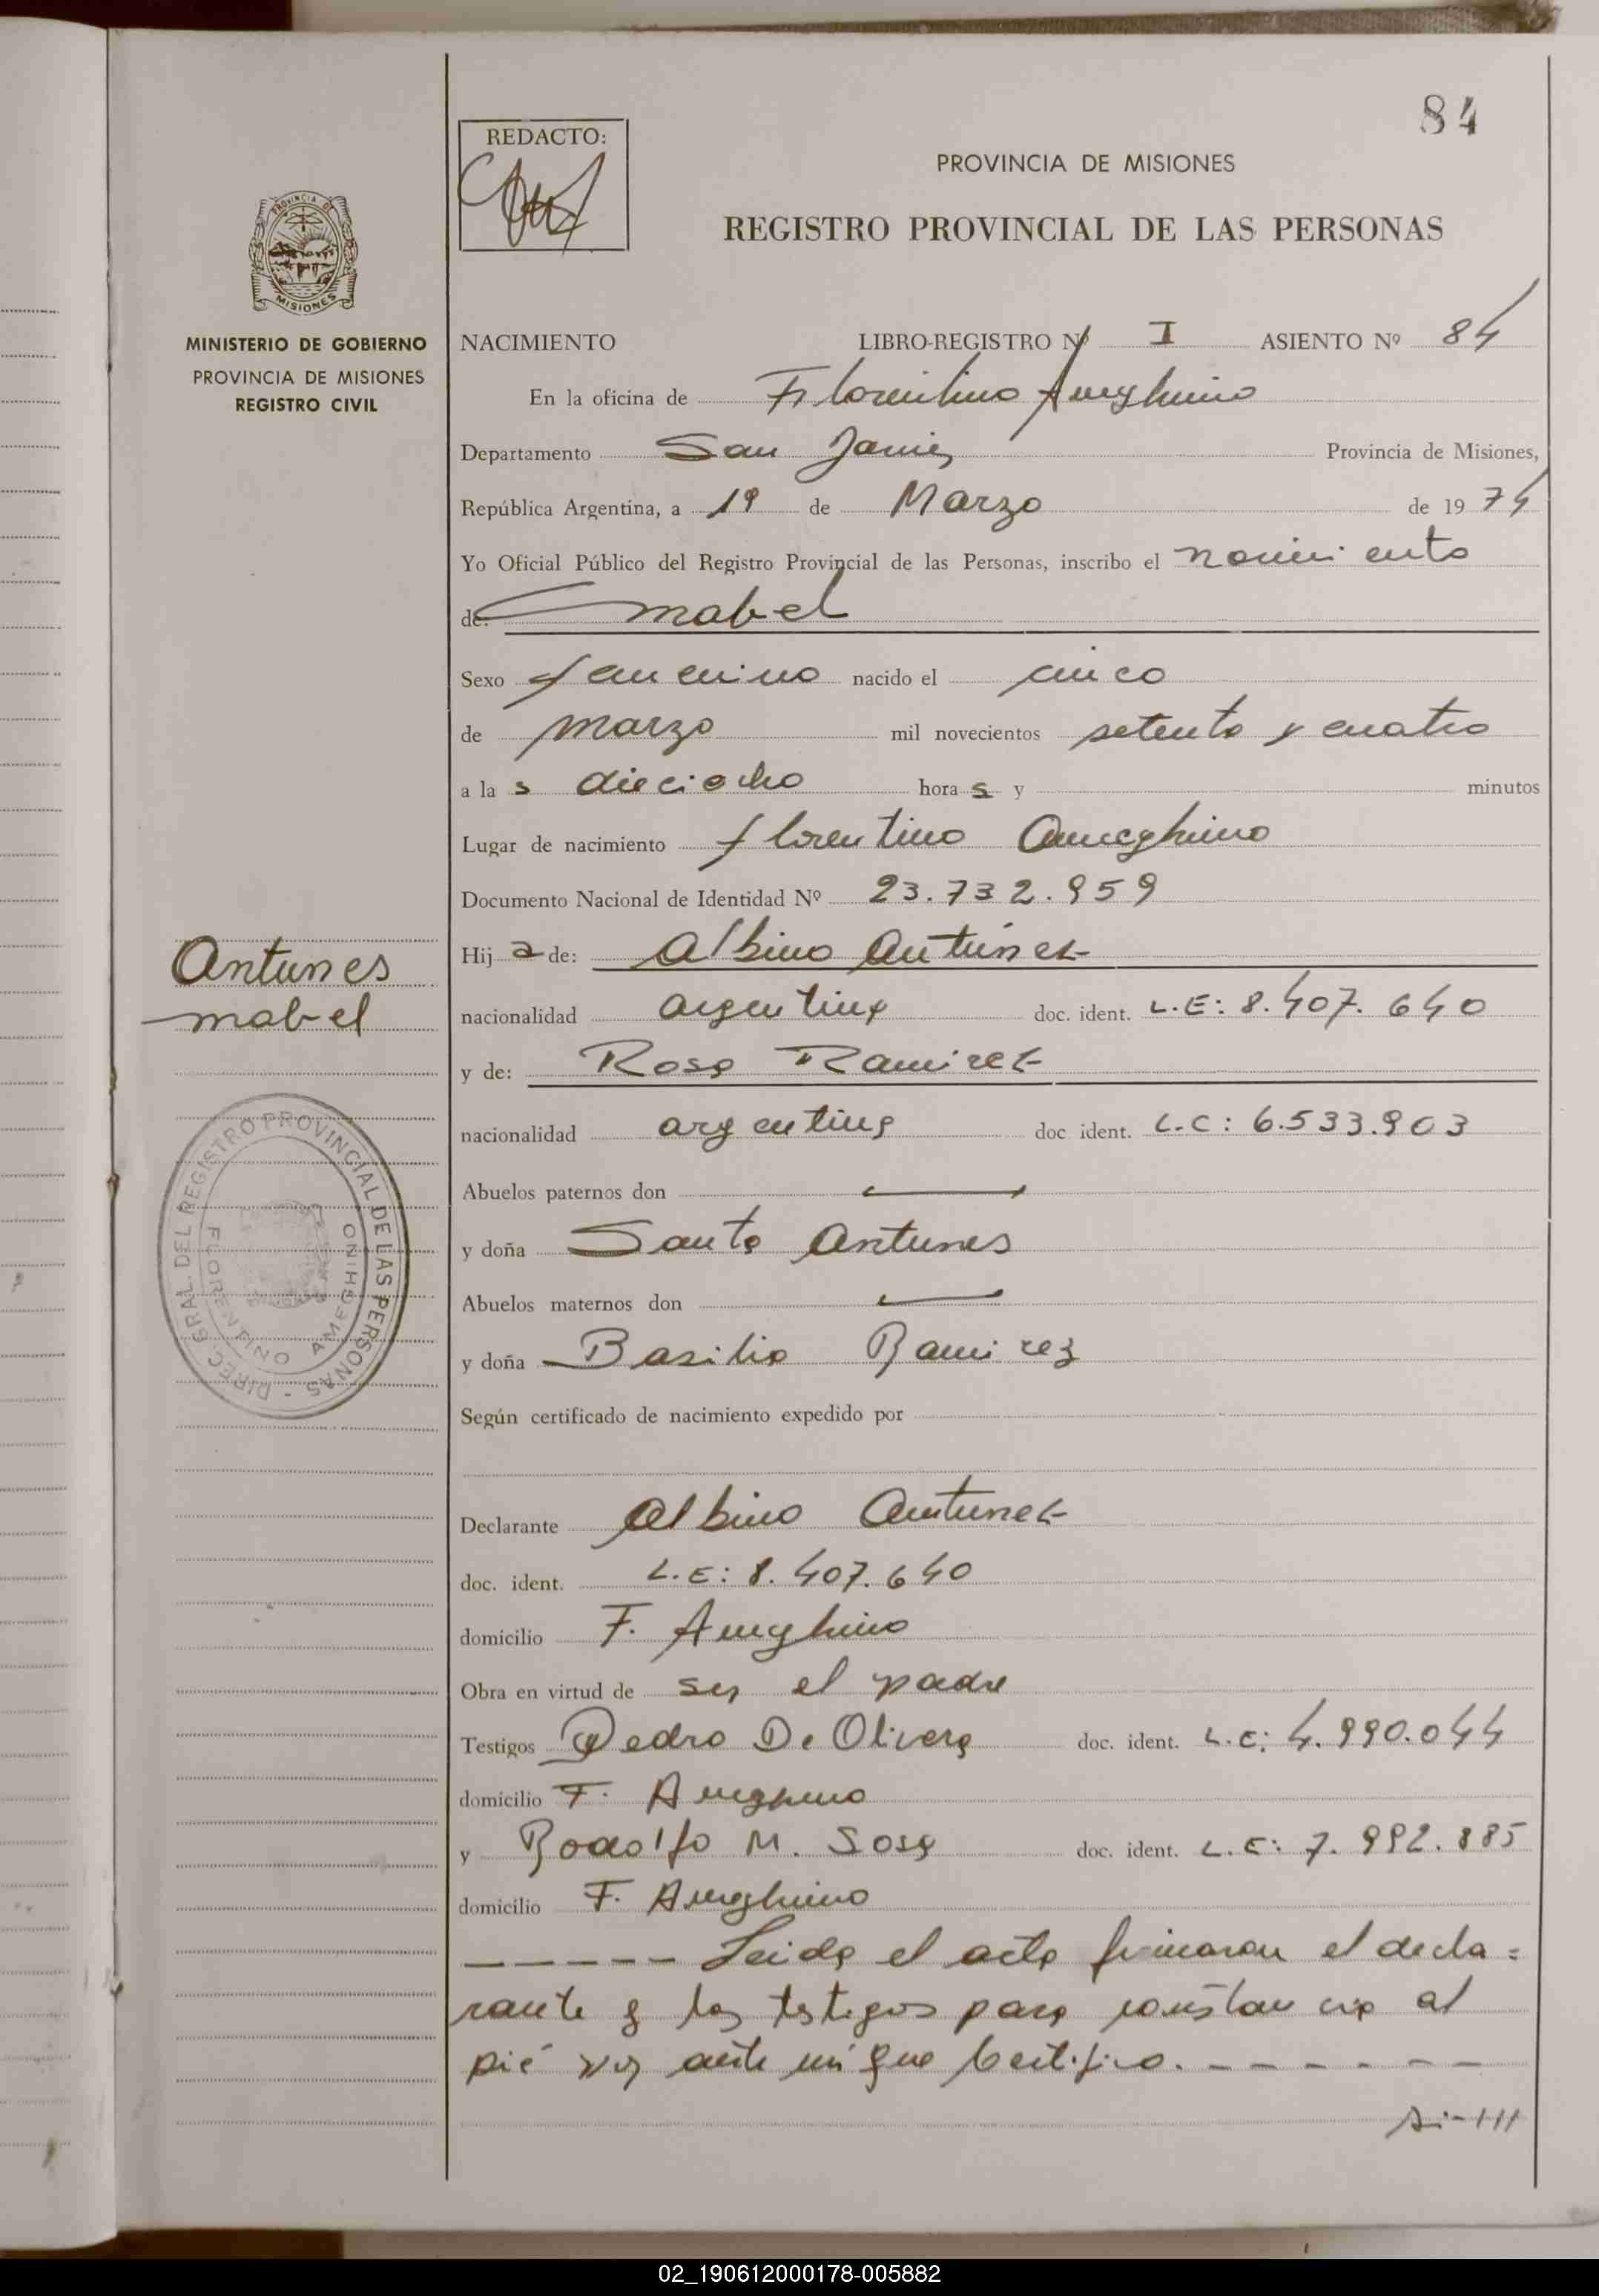 84
REDACTO:
PROVINCIA DE MISIONES
REGISTRO PROVINCIAL DE LAS PERSONAS
PROVINCIA DE
MISIONES
MINISTERIO DE GOBIERNO
PROVINCIA DE MISIONES
REGISTRO CIVIL
NACIMIENTO LIBRO-REGISTRO Nº I ASIENTO Nº 84
En la oficina de Florentino Ameghino
Departamento San Javier Provincia de Misiones,
República Argentina, a 19 de Marzo de 1974
Yo Oficial Público del Registro Provincial de las Personas, inscribo el nacimiento
de: mabel
Sexo femenino nacido el cinco
de marzo mil novecientos setenta y cuatro
a las dieciocho horas y minutos
Lugar de nacimiento florentino Ameghino
Documento Nacional de Identidad Nº 23.732.959
Hija de: Albino Antúnez
nacionalidad argentina doc. ident. L.E: 8.407.640
y de: Rosa Ramirez
nacionalidad argentina doc ident. L.C: 6.533.903
Abuelos paternos don
y doña Santa Antunes
Abuelos maternos don
y doña Basilia Ramirez
Según certificado de nacimiento expedido por
Declarante Albino Antunez
doc. ident. L.E: 8.407.640
domicilio F. Ameghino
Obra en virtud de ser el padre
Testigos Pedro De Olivera doc. ident. L.E: 4.990.044
domicilio F. Ameghino
y Rodolfo M. Sosa doc. ident. L.E: 7.992.885
domicilio F. Ameghino
Leida el acta firmaron el decla=
rante y los testigos para constancia al
pié por ante mí que Certifico.
Antunes
mabel
DIREC. GRAL. DEL REGISTRO PROVINCIAL DE LAS PERSONAS -
FLORENTINO AMEGHINO
02_190612000178-005882